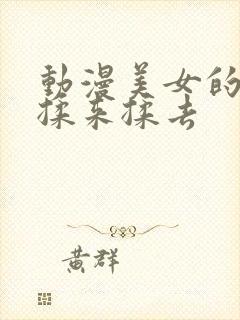 動漫美女的
揉来揉去
黄群